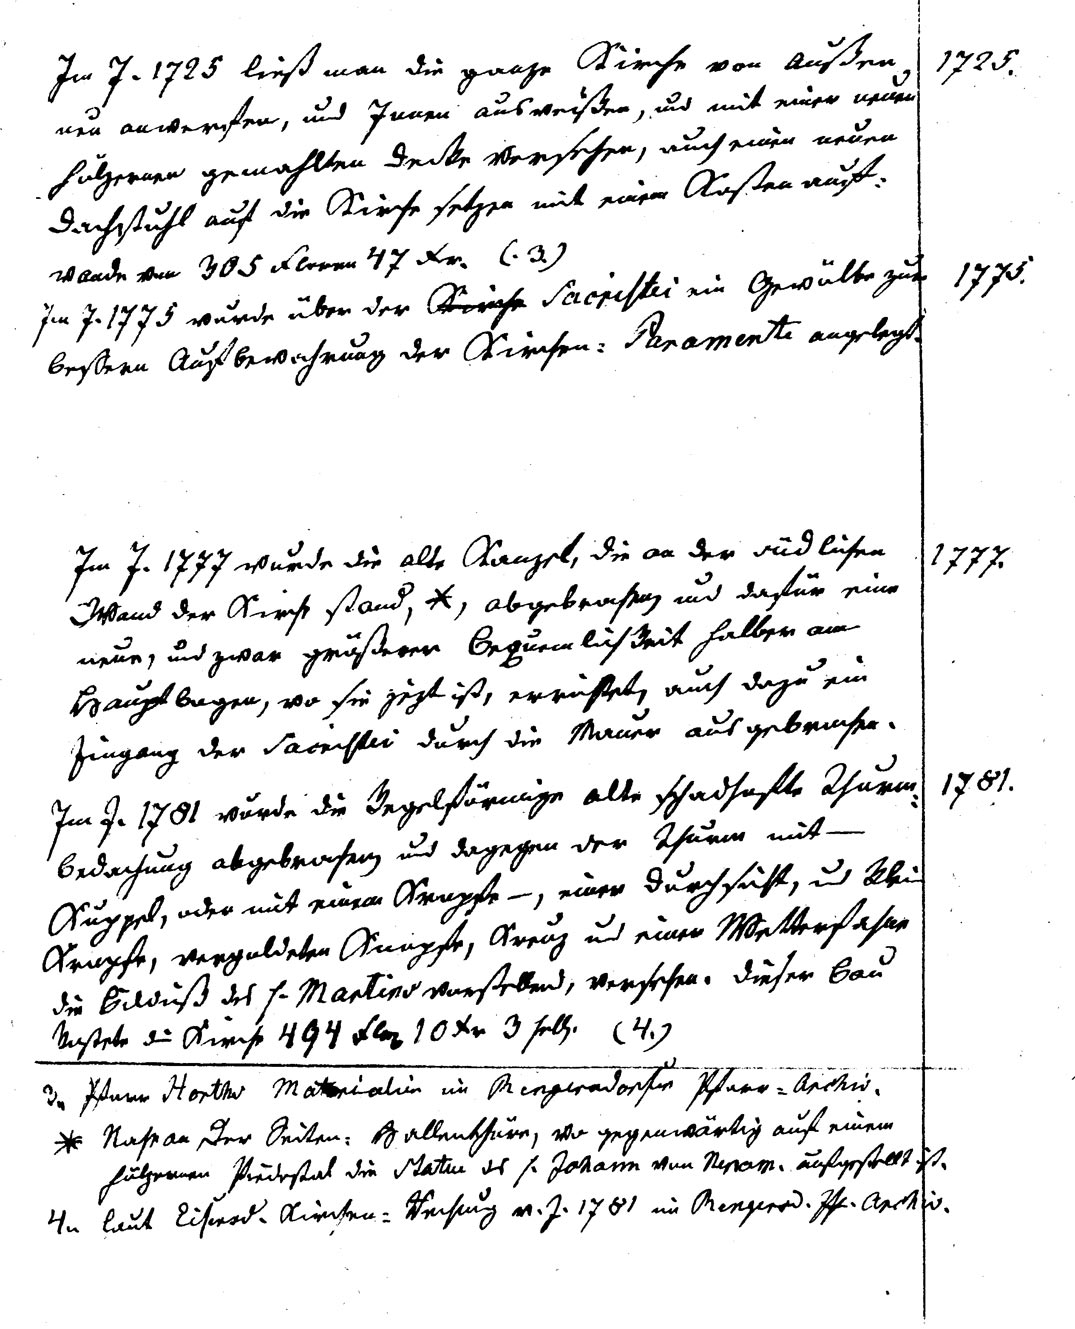 Im J. 1725 ließ man die ganze Kirche von Außen 1725.
neu anwerfen, und Innen ausweißen, und mit einer neuen
hölzernen gemahlten Decke versehen, auch einen neuen
Dachstuhl auf die Kirche setzen mit einem Kosten auf-
wande von 305 Floren 47 Xr. (.3.)
Im J. 1775 wurde über der Kirche Sacristei ein Gewölbe zur 1775.
bessern Aufbewahrung der Kirchen= Paramente angelegt.
Im J. 1777 wurde die alte Kanzel, die an der südlichen 1777.
Wand der Kirche stand, *, abgebrochen, und dafür eine
neue, und zwar größerer Bequemlichkeit halber am
Hauptbogen, wo sie jezt ist, errichtet, auch dazu ein
Eingang der Sacristei durch die Mauer ausgebrochen.
Im J. 1781 wurde die kegelförmige alte schadhafte Thurm= 1781.
bedachung abgebrochen, und dagegen der Thurm mit —
Kuppel, oder mit einem Knopfe —, einer Durchsicht, und klein
Knopfe, vergoldeten Knopfe, Kreuz und einer Wetterfahne
die Bildniß des h. Martins vorstellend, versehen. Dieser Bau
kostete die Kirche 494 Flor 10 Xr 3 hell. (4.)
3. Pfarr Materialien im Rengersdorfer Pfarr=Archiv.
* Nahe an der Seiten= Hallenthüre, wo gegenwärtig auf einem
hölzernen Piedestal die Statue des h. Johann von Nepom. aufgestellt ist.
4. laut Eisersd. Kirchen=Rechnung v. J. 1781 im Rengersd. Pf. Archiv.